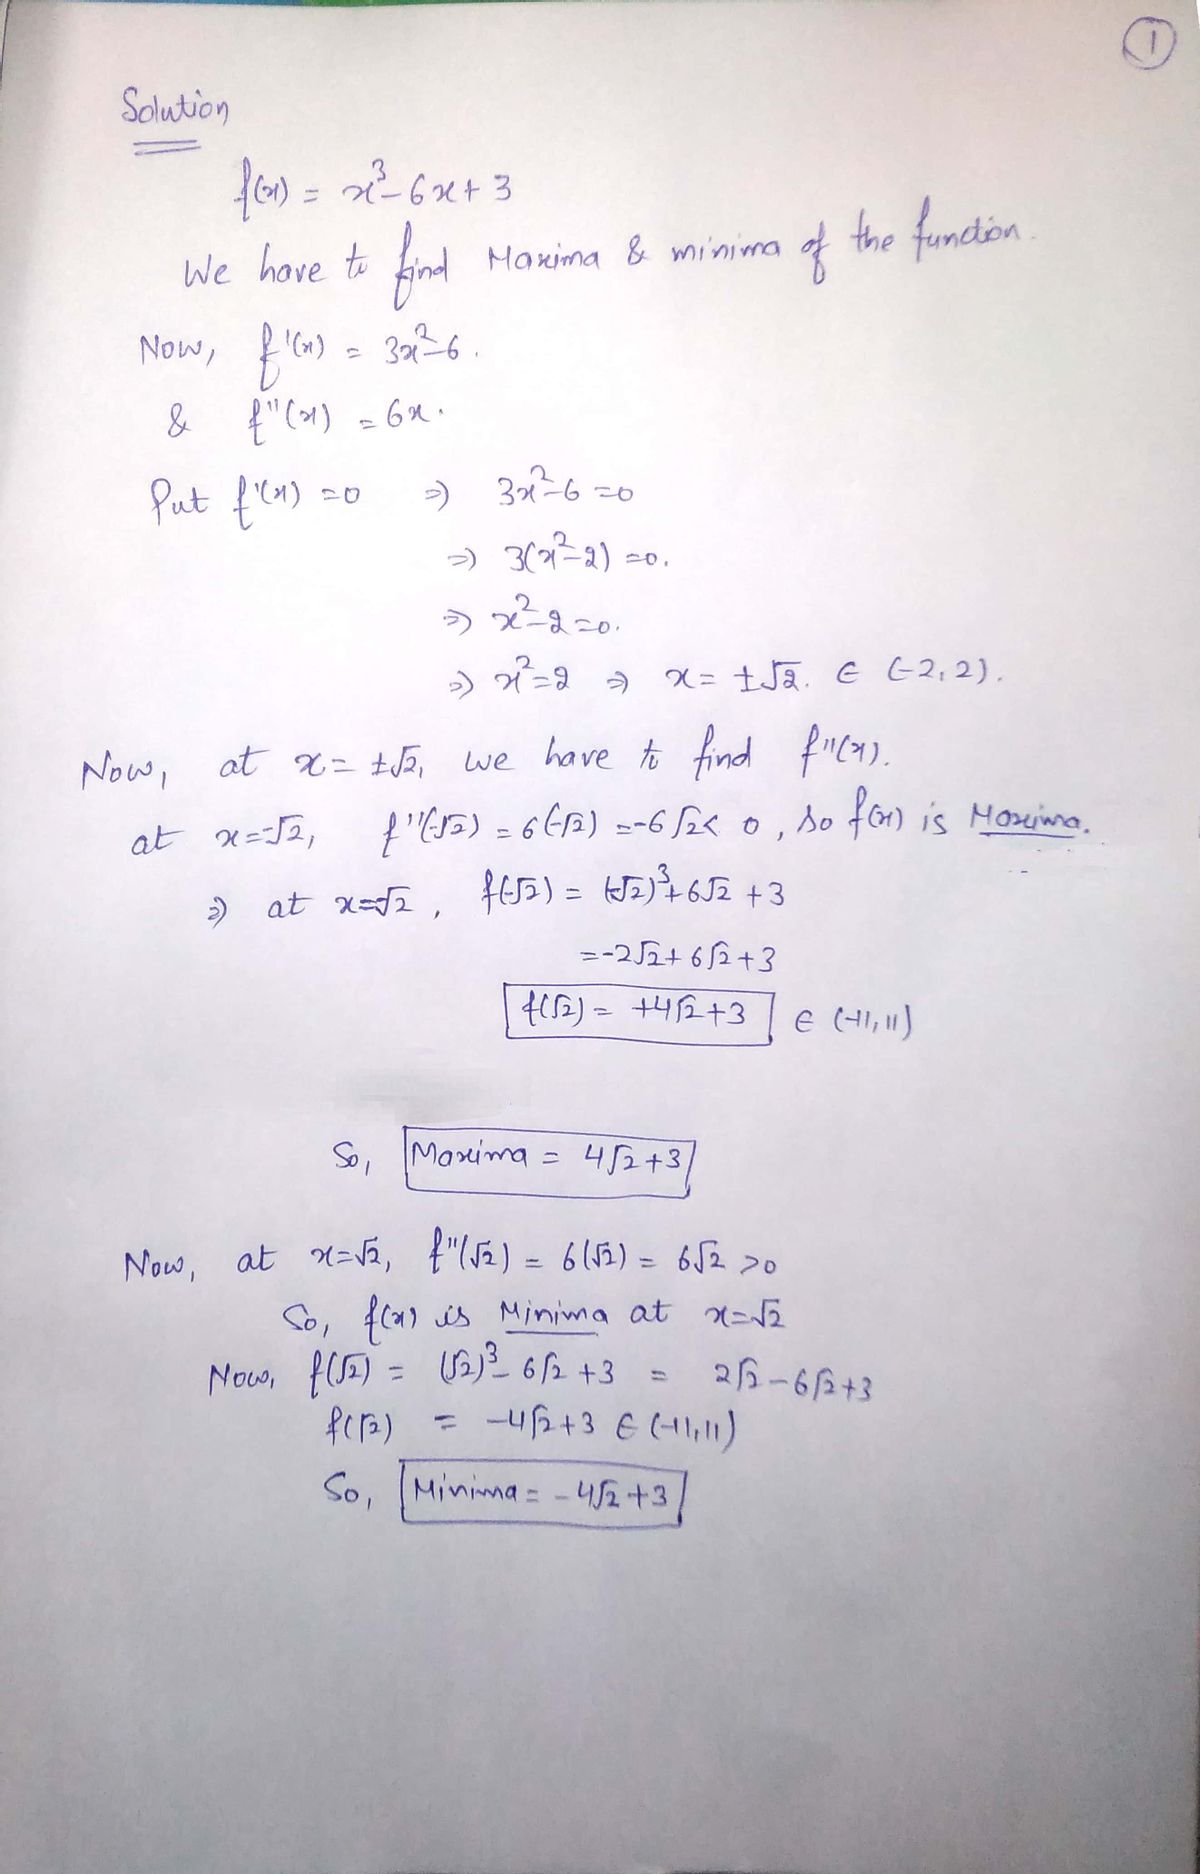 1
Solution
f(x) = x³-6x+3
We have to find Maxima & minima of the function.
Now, f'(x) = 3x²-6.
& f''(x) = 6x.
Put f'(x) =0 ⇒ 3x²-6=0
⇒ 3(x²-2) =0.
⇒ x²-2=0.
⇒ x²=2 ⇒ x= ±√2. ∈ (-2,2).
Now, at x= ±√2, we have to find f''(x).
at x=-√2, f''(-√2) = 6(-√2) =-6√2< 0, so f(x) is Maxima.
⇒ at x=-√2, f(-√2) = (-√2)³+6√2 +3
=-2√2+6√2+3
f(√2) = +4√2+3 ∈ (-11,11)
So, Maxima = 4√2+3
Now, at x=√2, f''(√2) = 6(√2) = 6√2 >0
So, f(x) is Minima at x=√2
Now, f(√2) = (√2)³-6√2 +3 = 2√2-6√2+3
f(√2) = -4√2+3 ∈ (-11,11)
So, Minima = -4√2+3